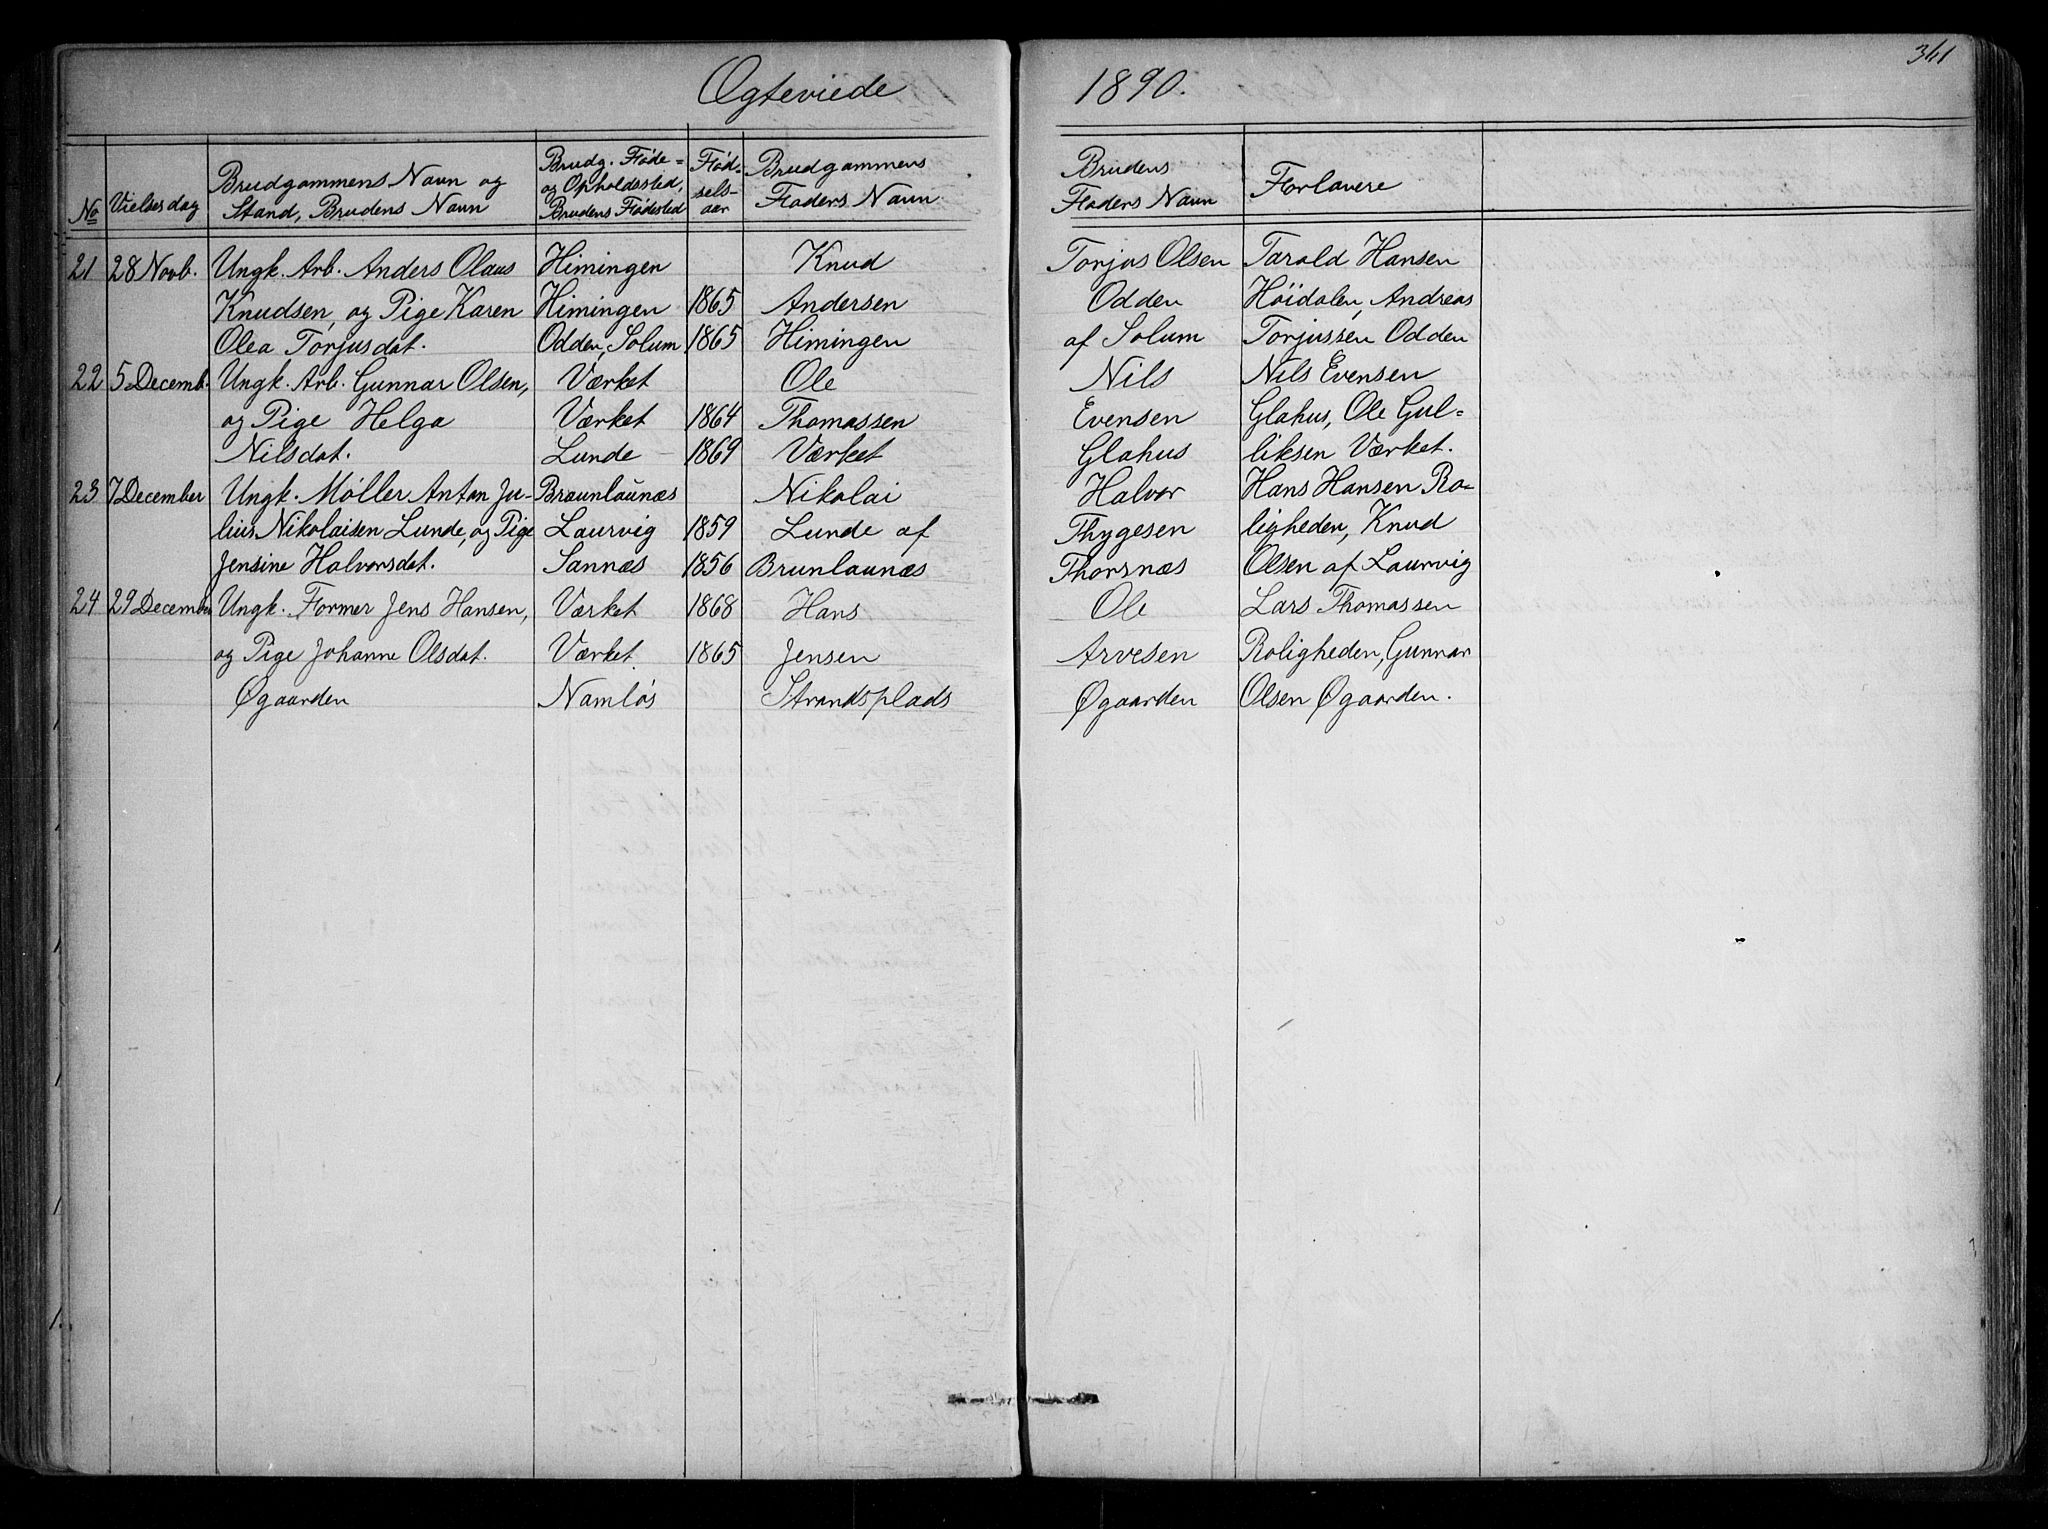 361
Ægteviede 1890.
No | Vielsesdag | Brudgommens Navn og Stand, Brudens Navn | Brudg. Føde- og Opholdssted, Brudens Fødested | Fødselsaar | Brudgommens Faders Navn | Brudens Faders Navn | Forlovere
21 | 28 Novb. | Ungk. Arb. Anders Olaus | Himingen | | Knud | Torjus Olsen | Tarald Hansen
Knudsen, og Pige Karen | Himingen | 1865 | Andersen | Odden | Høidalen, Andreas
Olea Torjusdat. | Odden, Solum | 1865 | Himingen | af Solum | Torjussen Odden
22 | 5 Decemb. | Ungk. Arb. Gunnar Olsen, | Værket | | Ole | Nils | Nils Evensen
og Pige Helga | Værket | 1864 | Thomassen | Evensen | Glahus, Ole Gul-
Nilsdat. | Lunde | 1869 | Værket | Glahus | liksen Værket.
23 | 7 December | Ungk. Møller Anton Ju- | Braunlaŭnæs | | Nikolai | Halvor | Hans Hansen Ro-
lius Nikolaisen Lunde, og Pige | Laurvig | 1859 | Lunde af | Thygesen | ligheden, Knud
Jensine Halvorsdat. | Sannæs | 1856 | Brunlaunæs | Thorsnæs | Olsen af Laurvig
24 | 29 December | Ungk. Former Jens Hansen, | Værket | 1868 | Hans | Ole | Lars Thomassen
og Pige Johanne Olsdat. | Værket | 1865 | Jensen | Arvesen | Roligheden, Gunnar
Øgaarden | Namløs | | Strandsplads | Øgaarden | Olsen Øgaarden.